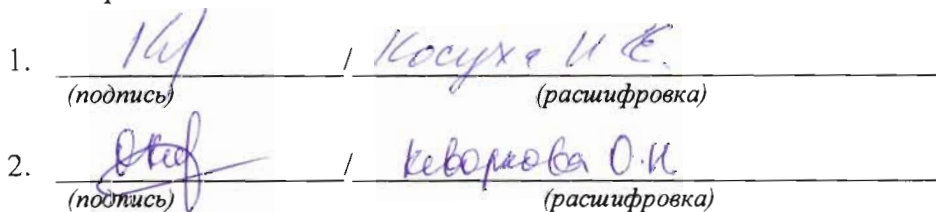 1. / Косуха И.Е.
(подпись) (расшифровка)
2. / Кеворкова О.Н
(подпись) (расшифровка)